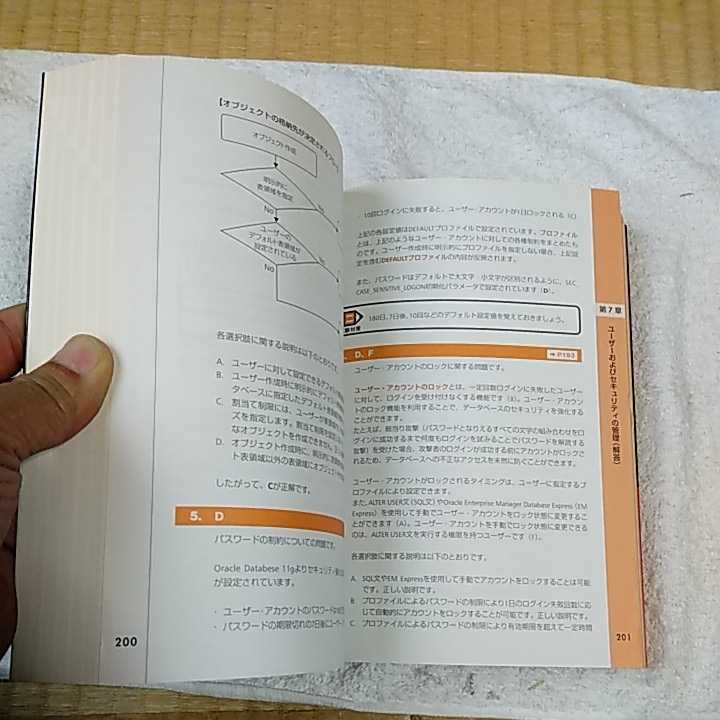 【オブジェクトの格納先が決定されるフロー
オブジェクト作成
明示的に
表領域を指定
No
Yes
ユーザーの
デフォルト表領域が
設定されている
No
各選択肢に関する説明は以下のとおりです
A. ユーザーに対して設定できるデフォルト
B. ユーザー作成時に明示的にデフォルト
タベースに指定したデフォルト表領域
C. 割当て制限には、ユーザーが表領域
ズを指定します。割当て制限
なオブジェクトを作成できません
D. オブジェクト作成時に、明示的に表領域
ト表領域以外の表領域にオブジェクト
したがって、Cが正解です。
5. D
パスワードの制約についての問題です。
Oracle Databese 11gよりセキュリティ
が設定されています。
・ ユーザー・アカウントのパスワードは
・ パスワードの期限切れの7日後にユーザー
200
・ 10回ログインに失敗すると、ユーザー・アカウントが1日ロックされる（C）
上記の各設定値はDEFAULTプロファイルで設定されています。プロファイル
とは、上記のようなユーザー・アカウントに対しての各種制約をまとめたも
のです。ユーザー作成時に明示的にプロファイルを指定しない場合、上記設
定を含むDEFAULTプロファイルの内容が反映されます。
また、パスワードはデフォルトで大文字・小文字が区別されるように、SEC_
CASE_SENSITIVE_LOGON初期化パラメータで設定されています（D）。
180日、7日後、10回などのデフォルト設定値を覚えておきましょう。
D、F
➡ P193
ユーザー・アカウントのロックに関する問題です。
ユーザー・アカウントのロックとは、一定回数ログインに失敗したユーザー
に対して、ログインを受け付けなくする機能です（E）。ユーザー・アカウン
トのロック機能を利用することで、データベースのセキュリティを強化する
ことができます。
たとえば、総当り攻撃（パスワードとなりえるすべての文字の組み合わせをロ
グインに成功するまで何度もログインを試みることでパスワードを解読する
攻撃）を受けた場合、攻撃者のログインが成功する前にアカウントがロックさ
れるため、データベースへの不正なアクセスを未然に防ぐことができます。
ユーザー・アカウントがロックされるタイミングは、ユーザーに指定するプ
ロファイルにより設定できます。
また、ALTER USER文（SQL文）やOracle Enterprise Manager Database Express（EM
Express）を使用して手動でユーザー・アカウントをロック状態に変更するこ
とができます（A）。ユーザー・アカウントを手動でロック状態に変更できる
のは、ALTER USER文を実行する権限を持つユーザーです（F）。
各選択肢に関する説明は以下のとおりです。
A. SQL文やEM Expressを使用して手動でアカウントをロックすることは可能
です。正しい説明です。
B. プロファイルによるパスワードの制限により1日のログイン失敗回数に応
じて自動的にアカウントをロックすることが可能です。正しい説明です。
C. プロファイルによるパスワードの制限により有効期限を超えて一定時間
第7章
ユーザーおよびセキュリティの管理（解答）
201